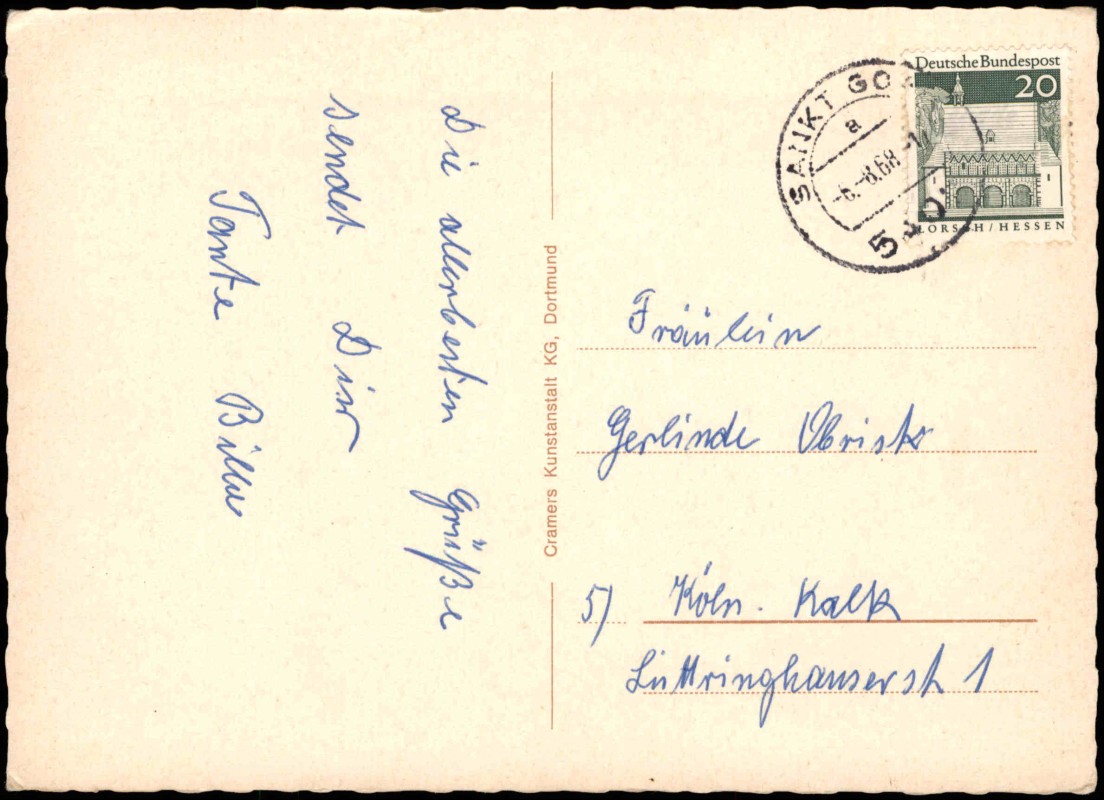 Die allerbesten Grüße
sendet Dir
Tante Billa
Cramers Kunstanstalt KG, Dortmund
SANKT GOA
a
-6.-8.68-1
540
Deutsche Bundespost
20
LORSCH / HESSEN
Fräulein
Gerlinde Obrist
5) Köln-Kalk
Lüttringhauserst 1